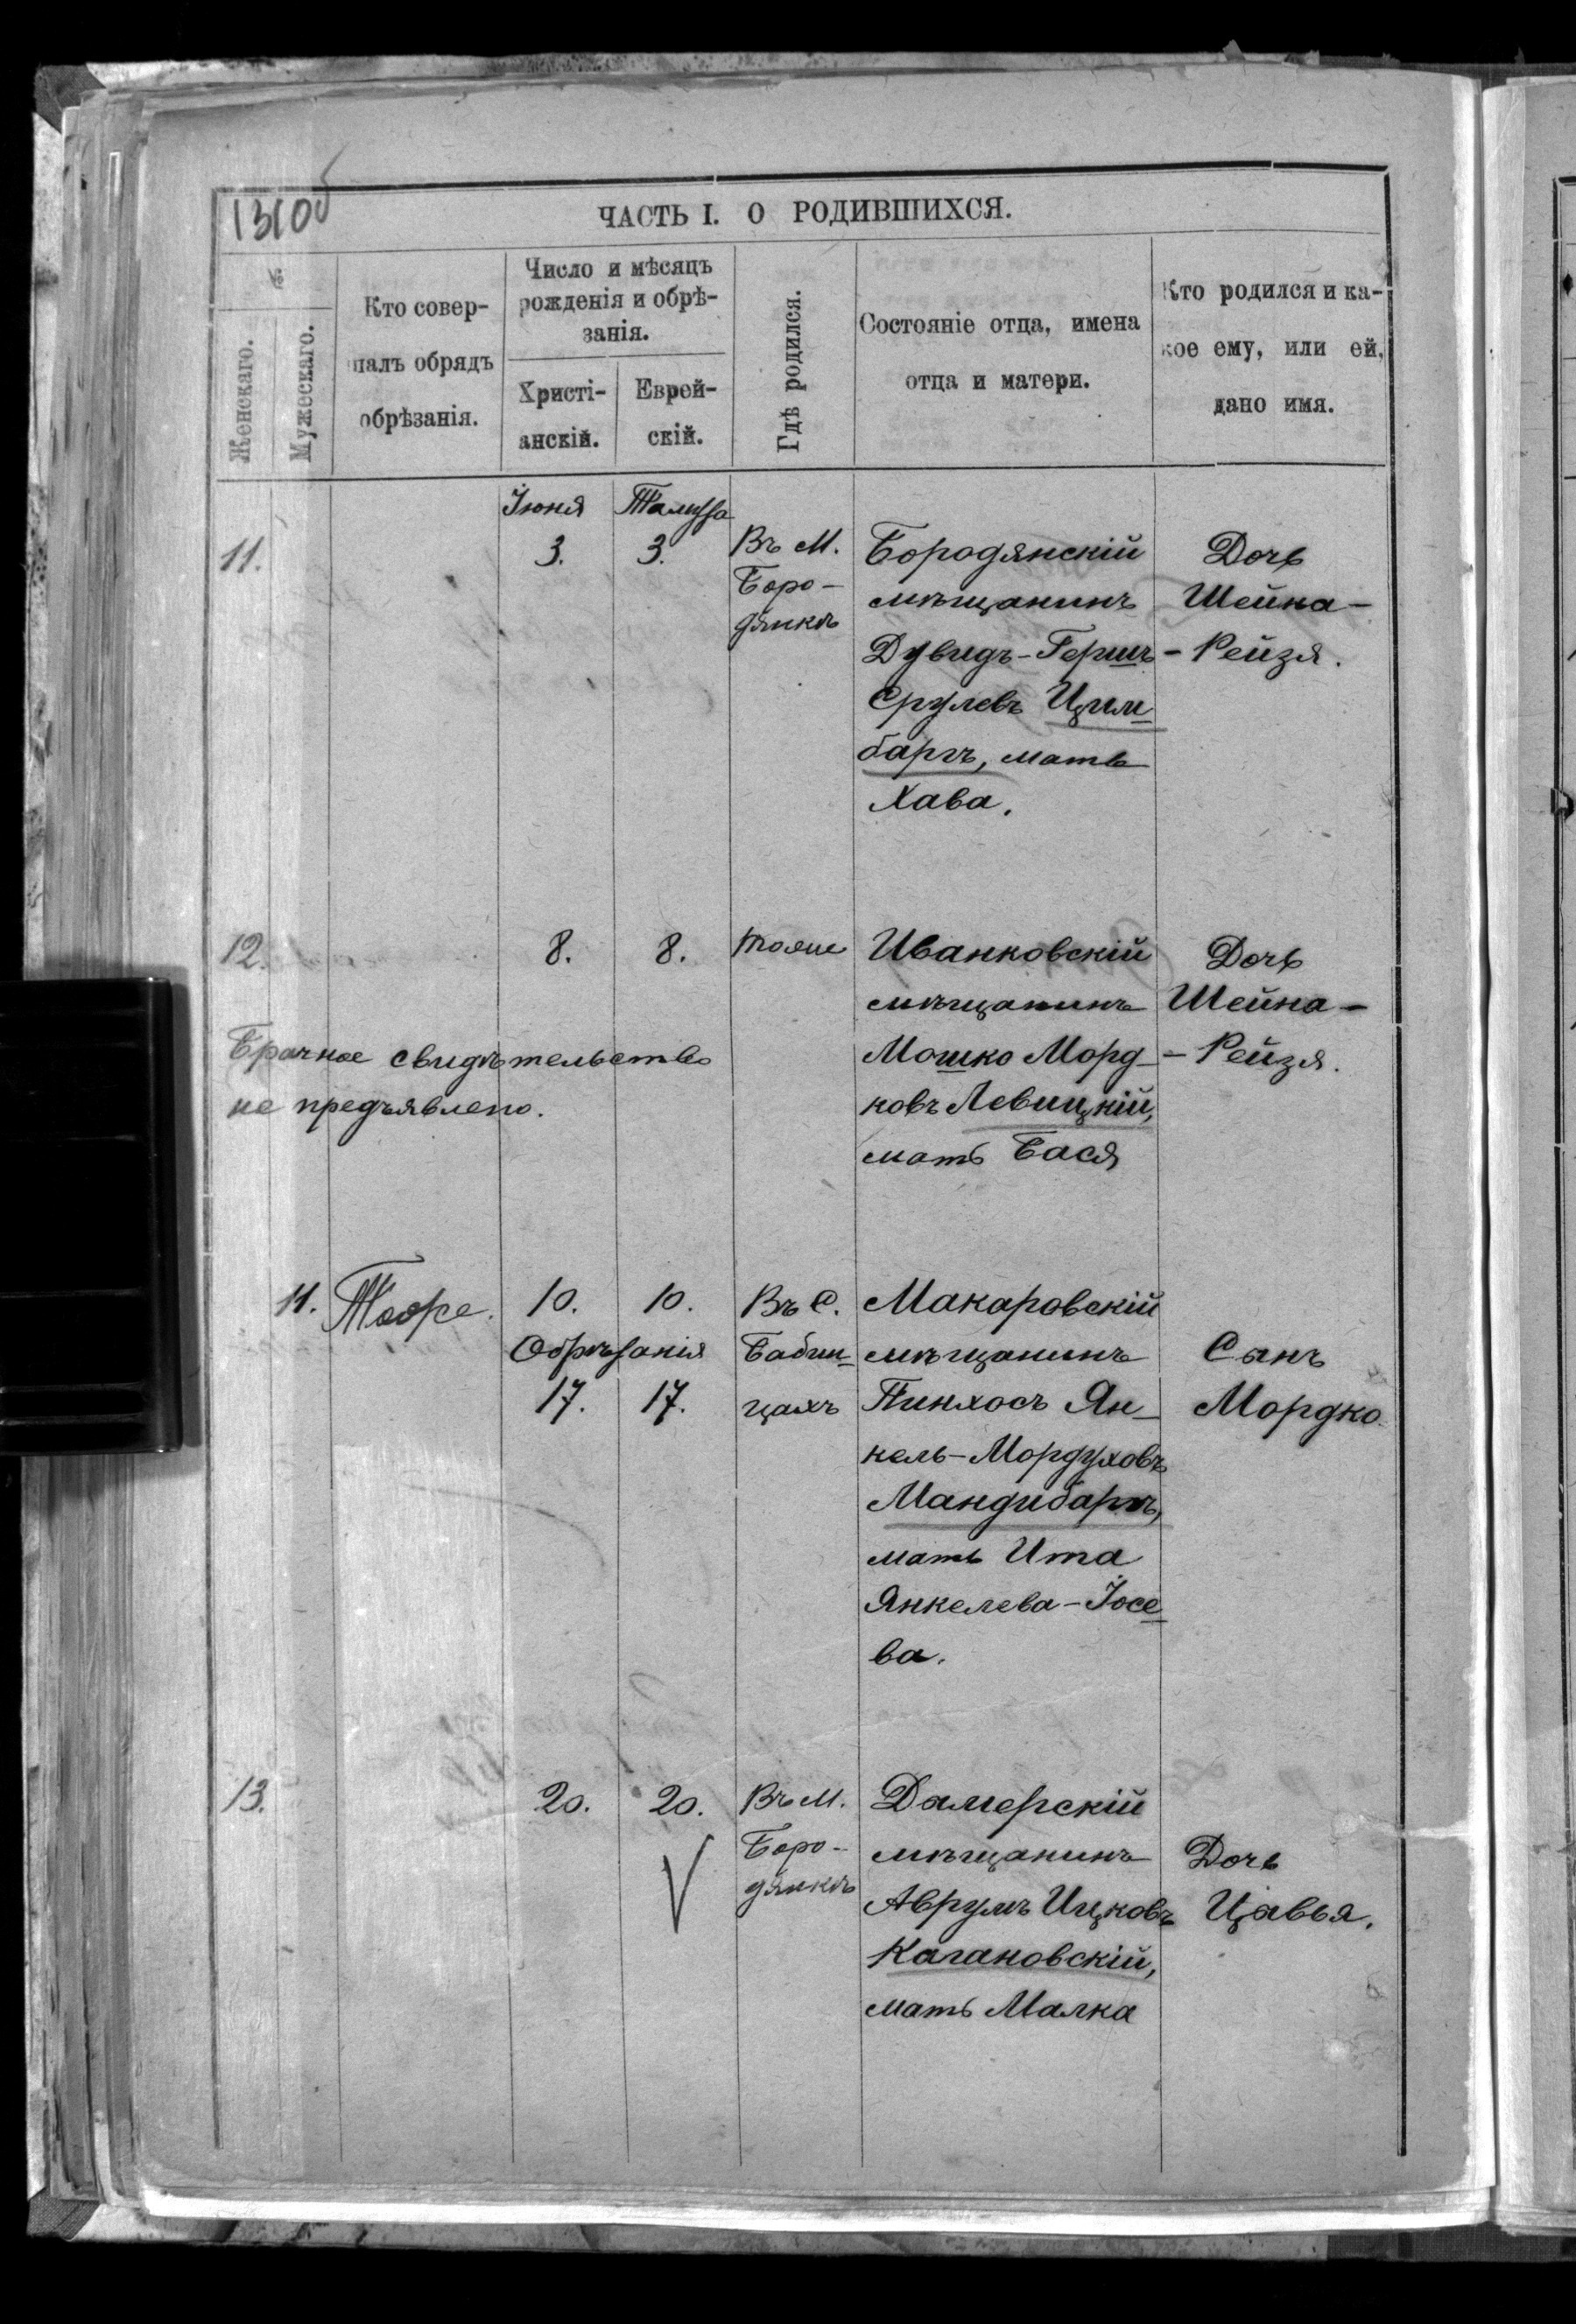 131об
ЧАСТЬ I. О РОДИВШИХСЯ.
№
Женскаго.
Мужескаго.
Кто совер-
шалъ обрядъ
обрѣзанія.
Число и мѣсяцъ
рожденія и обрѣ-
занія.
Христі-
анскій.
Еврей-
скій.
Гдѣ родился.
Состояніе отца, имена
отца и матери.
Кто родился и ка-
кое ему, или ей,
дано имя.
Іюня
Тамуза
11.
3.
3.
Въ М.
Боро-
дянкѣ
Бородянскій
мѣщанинъ
Дувидъ-Гершъ
Срулевъ Цим-
баргъ, мать
Хава.
Дочь
Шейна-
-Рейзя.
12.
8.
8.
тоже
Иванковскій
мѣщанинъ
Мошко Морд-
ковъ Левицкій,
мать Бася
Дочь
Шейна-
-Рейзя.
Брачное свидѣтельство
не предъявлено.
11.
10.
10.
Обрѣзанія
17.
17.
Въ С.
Бабин-
цахъ
Макаровскій
мѣщанинъ
Пинхосъ Ян-
кель-Мордуховъ
Мандибаргъ,
мать Ита
Янкелева-Іосе-
ва.
Сынъ
Мордко
13.
20.
20.
Въ М.
Боро-
дянкѣ
Дамерскій
мѣщанинъ
Аврумъ Ицковъ
Кагановскій,
мать Малка
Дочь
Цивья.